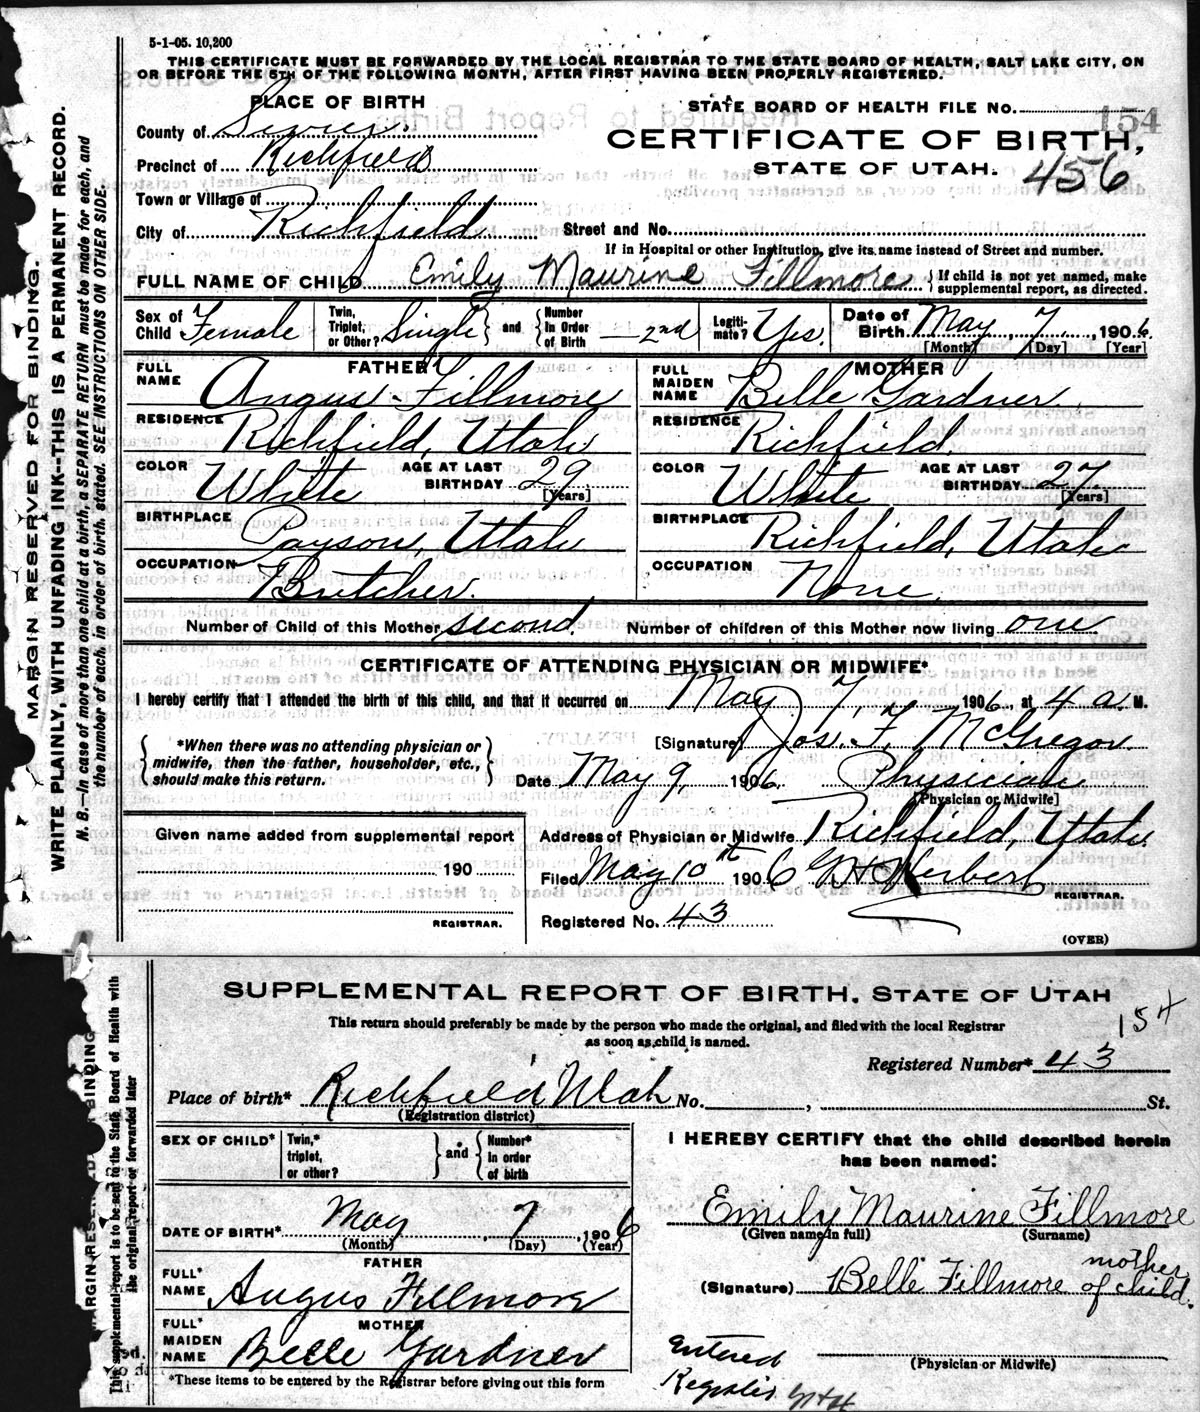 5-1-05. 10,200
THIS CERTIFICATE MUST BE FORWARDED BY THE LOCAL REGISTRAR TO THE STATE BOARD OF HEALTH, SALT LAKE CITY, ON
OR BEFORE THE 5TH OF THE FOLLOWING MONTH, AFTER FIRST HAVING BEEN PROPERLY REGISTERED.
MARGIN RESERVED FOR BINDING.
WRITE PLAINLY, WITH UNFADING INK--THIS IS A PERMANENT RECORD.
N. B.—In case of more than one child at a birth, a SEPARATE RETURN must be made for each, and
the number of each, in order of birth, stated. SEE INSTRUCTIONS ON OTHER SIDE.
PLACE OF BIRTH
STATE BOARD OF HEALTH FILE NO. 154
County of Sevier.
CERTIFICATE OF BIRTH,
Precinct of Richfield
STATE OF UTAH. 456
Town or Village of
City of Richfield Street and No.
If in Hospital or other Institution, give its name instead of Street and number.
FULL NAME OF CHILD Emily Maurine Fillmore { If child is not yet named, make
supplemental report, as directed.
Sex of Child Female Twin, Triplet, or Other? Single and Number In Order of Birth 2nd Legitimate? Yes. Date of Birth May 7, 1906
[Month] [Day] [Year]
FATHER MOTHER
FULL NAME Angus Fillmore FULL MAIDEN NAME Belle Gardner
RESIDENCE Richfield, Utah RESIDENCE Richfield.
COLOR White AGE AT LAST BIRTHDAY 29 [Years] COLOR White AGE AT LAST BIRTHDAY 27 [Years]
BIRTHPLACE Payson, Utah BIRTHPLACE Richfield, Utah
OCCUPATION Butcher. OCCUPATION None
Number of Child of this Mother second. Number of children of this Mother now living one.
CERTIFICATE OF ATTENDING PHYSICIAN OR MIDWIFE*
I hereby certify that I attended the birth of this child, and that it occurred on May 7, 1906, at 4 a. M.
{ *When there was no attending physician or
midwife, then the father, householder, etc.,
should make this return. }
[Signature] Jos. F. McGregor.
Date May 9, 1906. Physician
[Physician or Midwife]
Given name added from supplemental report
190
REGISTRAR.
Address of Physician or Midwife Richfield, Utah.
Filed May 10th 1906 G H Herbert
REGISTRAR.
Registered No. 43
(OVER)
MARGIN RESERVED BINDING
This supplemental report is to be sent to the State Board of Health with
the original report or forwarded later
SUPPLEMENTAL REPORT OF BIRTH, STATE OF UTAH
This return should preferably be made by the person who made the original, and filed with the local Registrar
as soon as child is named.
154
Registered Number* 43
Place of birth* Richfield Utah No. , St.
(Registration district)
SEX OF CHILD* Twin,* triplet, or other? and Number* In order of birth
I HEREBY CERTIFY that the child described herein
has been named:
DATE OF BIRTH* May 7, 1906
(Month) (Day) (Year)
Emily Maurine Fillmore
(Given name in full) (Surname)
FATHER
FULL* NAME Angus Fillmore
(Signature) Belle Fillmore mother of child.
MOTHER
FULL* MAIDEN NAME Belle Gardner
(Physician or Midwife)
Entered
*These items to be entered by the Registrar before giving out this form